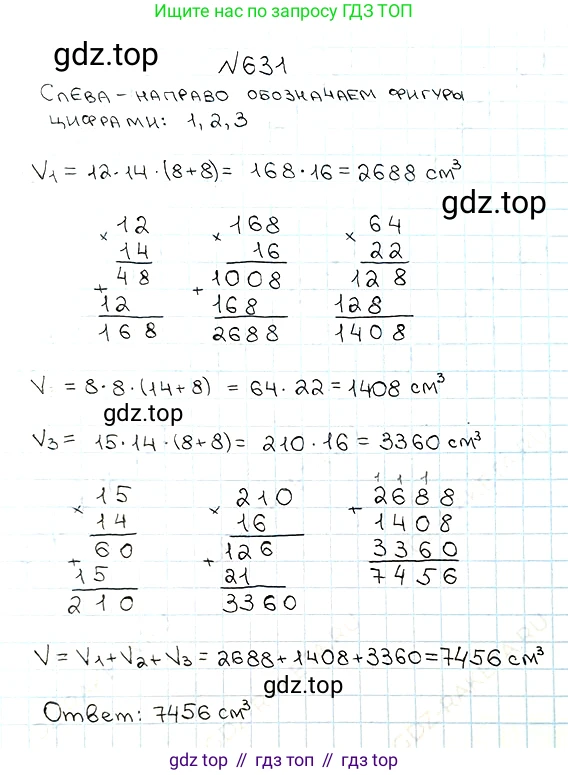 Ищите по запросу ГДЗ ТОП
gdz.top
№631
Слева-направо обозначаем фигуры
цифрами: 1, 2, 3
V1 = 12·14·(8+8) = 168·16 = 2688 см³
gdz.top
× 12 × 168 × 64
14 16 22
+ 48 + 1008 128
12 168 128
168 2688 1408
V = 8·8·(14+8) = 64·22 = 1408 см³
gdz.top
V3 = 15·14·(8+8) = 210·16 = 3360 см³
1 1 1
× 15 × 210 + 2688
14 16 1408
+ 60 + 126 3360
15 21 7456
210 3360
V = V1+V2+V3 = 2688+1408+3360=7456 см³
gdz.top
Ответ: 7456 см³
gdz.top // гдз.топ // гдз.top